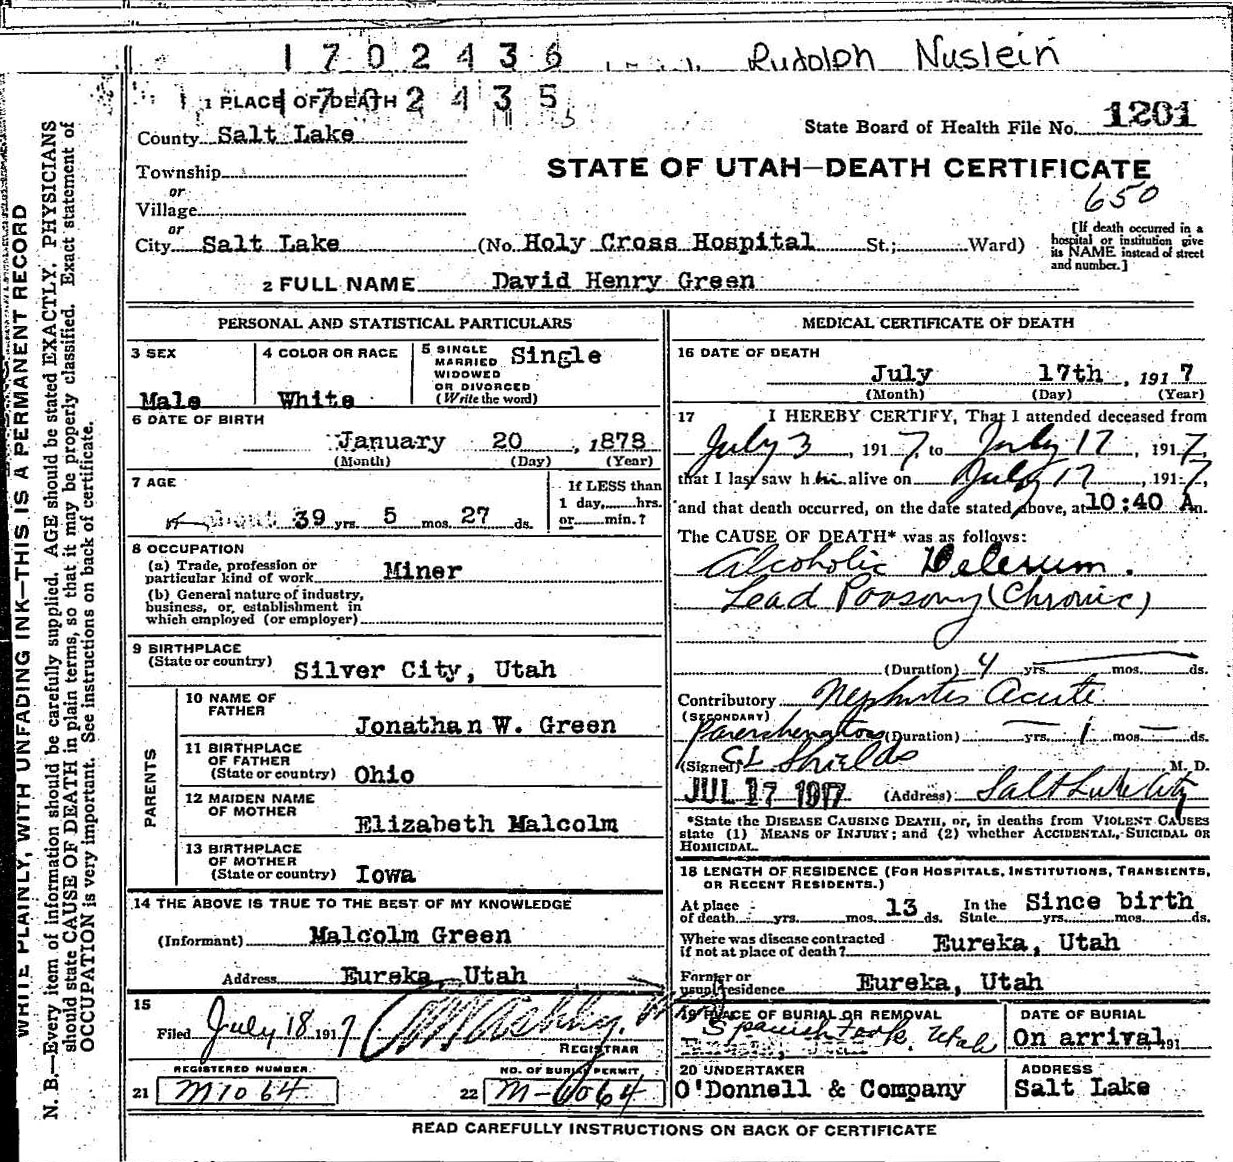 1702436 Rudolph Nuslein
1702435
1 PLACE OF DEATH
County Salt Lake
State Board of Health File No. 1201
Township
STATE OF UTAH—DEATH CERTIFICATE
or
650
Village
or
City Salt Lake (No. Holy Cross Hospital St.; Ward)
[If death occurred in a
hospital or institution give
its NAME instead of street
and number.]
2 FULL NAME David Henry Green
PERSONAL AND STATISTICAL PARTICULARS
3 SEX
Male
4 COLOR OR RACE
White
5 SINGLE
MARRIED
WIDOWED
OR DIVORCED
(Write the word)
Single
6 DATE OF BIRTH
January 20, 1878
(Month) (Day) (Year)
7 AGE
39 yrs. 5 mos. 27 ds.
If LESS than
1 day, hrs.
or min.?
8 OCCUPATION
(a) Trade, profession or
particular kind of work Miner
(b) General nature of industry,
business, or establishment in
which employed (or employer)
9 BIRTHPLACE
(State or country) Silver City, Utah
PARENTS
10 NAME OF
FATHER
Jonathan W. Green
11 BIRTHPLACE
OF FATHER
(State or country) Ohio
12 MAIDEN NAME
OF MOTHER
Elizabeth Malcolm
13 BIRTHPLACE
OF MOTHER
(State or country) Iowa
14 THE ABOVE IS TRUE TO THE BEST OF MY KNOWLEDGE
(Informant) Malcolm Green
Address Eureka, Utah
15
Filed July 18 1917
REGISTRAR
REGISTERED NUMBER
21 M1064
NO. OF BURIAL PERMIT
22 M-6064
MEDICAL CERTIFICATE OF DEATH
16 DATE OF DEATH
July 17th, 1917
(Month) (Day) (Year)
17 I HEREBY CERTIFY, That I attended deceased from
July 3, 1917, to July 17, 1917,
that I last saw him alive on July 17, 1917,
and that death occurred, on the date stated above, at 10:40 A m.
The CAUSE OF DEATH* was as follows:
Alcoholic Delerum.
Lead Poisong (Chronic)
(Duration) 4 yrs. mos. ds.
Contributory Nephritis Acute
(SECONDARY)
(Duration) yrs. 1 mos. ds.
(Signed) CL Shields M. D.
JUL 17 1917 (Address) Salt Lake City
*State the DISEASE CAUSING DEATH, or, in deaths from VIOLENT CAUSES
state (1) MEANS OF INJURY; and (2) whether ACCIDENTAL, SUICIDAL OR
HOMICIDAL.
18 LENGTH OF RESIDENCE (FOR HOSPITALS, INSTITUTIONS, TRANSIENTS,
OR RECENT RESIDENTS.)
At place
of death yrs. mos. 13 ds.
In the
State Since birth yrs. mos. ds.
Where was disease contracted
if not at place of death? Eureka, Utah
Former or
usual residence Eureka, Utah
19 PLACE OF BURIAL OR REMOVAL
Spanish Fork, Utah
DATE OF BURIAL
On arrival, 191
20 UNDERTAKER
O'Donnell & Company
ADDRESS
Salt Lake
READ CAREFULLY INSTRUCTIONS ON BACK OF CERTIFICATE
WRITE PLAINLY, WITH UNFADING INK—THIS IS A PERMANENT RECORD
N. B.—Every item of information should be carefully supplied. AGE should be stated EXACTLY. PHYSICIANS
should state CAUSE OF DEATH in plain terms, so that it may be properly classified. Exact statement of
OCCUPATION is very important. See instructions on back of certificate.